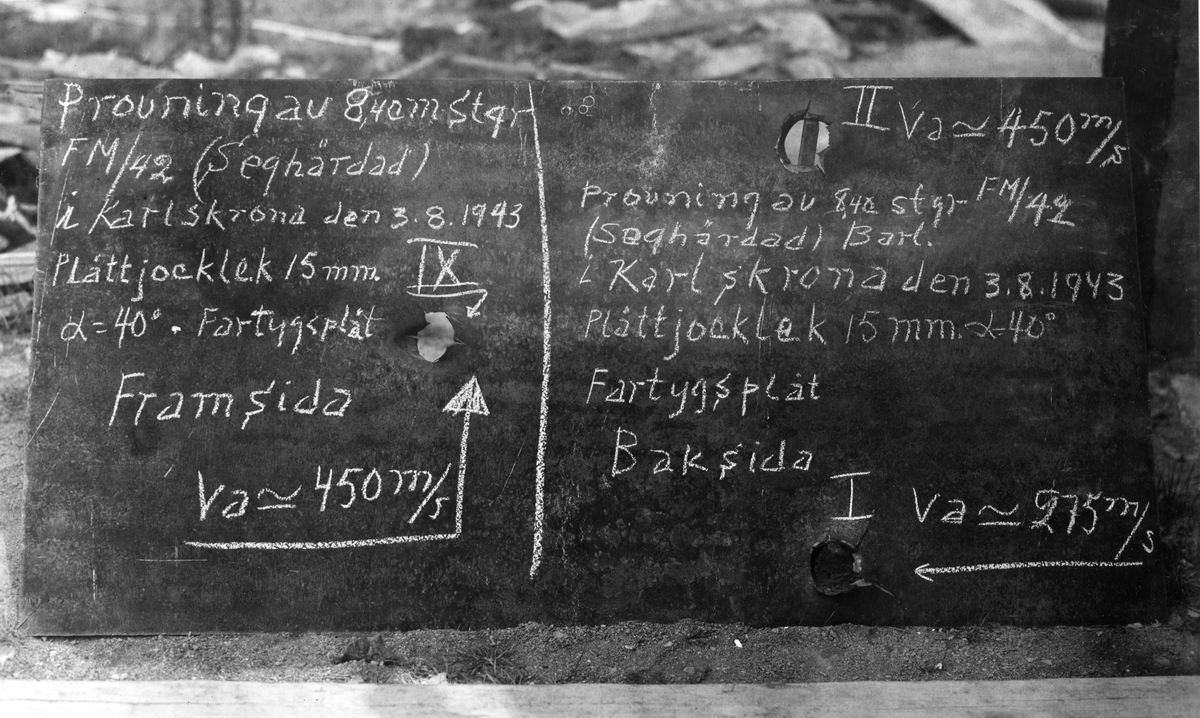 Provning av 8,4cm stgr
FM/42 (Seghärdad)
i Karlskrona den 3.8.1943
IX
Plåttjocklek 15 mm.
α=40°. Fartygsplåt
Framsida
Va≃450 m/s
II Va≃450 m/s
Provning av 8,4c stgr FM/42
(Seghärdad) Barl.
i Karlskrona den 3.8.1943
Plåttjocklek 15 mm. α-40°
Fartygsplåt
Baksida
I
Va≃275 m/s